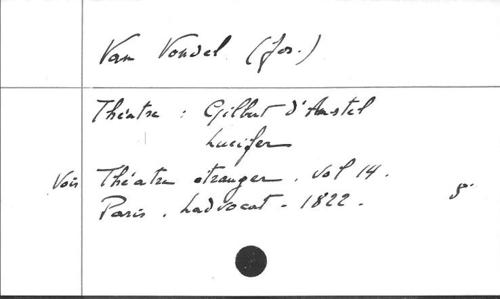 Van Vondel (Jos.)
Théatre : Gilbert d'Amstel
Lucifer
Voir Théatre etranger. Vol 14.
Paris. Ladvocat - 1822. 8°